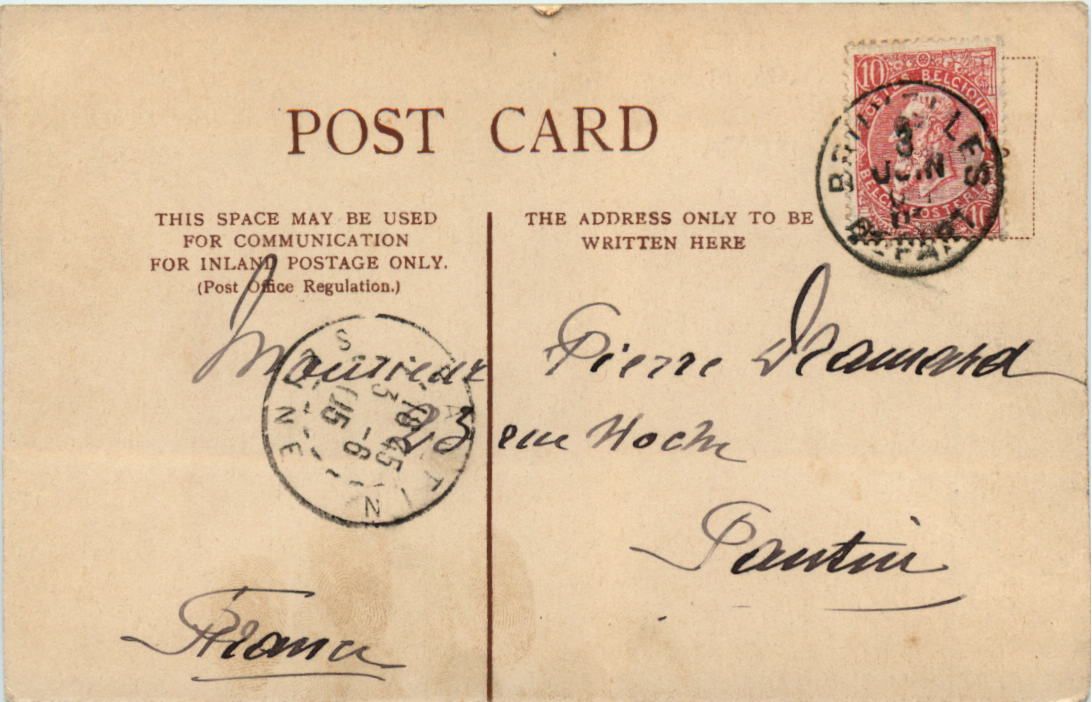 POST CARD
THIS SPACE MAY BE USED
FOR COMMUNICATION
FOR INLAND POSTAGE ONLY.
(Post Office Regulation.)
THE ADDRESS ONLY TO BE
WRITTEN HERE
10 BELGIQUE
BRUXELLES
3
JUIN
DEPART
10
Monsieur Pierre Dramard
23 rue Hoche
Pantin
France
PANTIN
SEINE
18 45
3 - 6
05